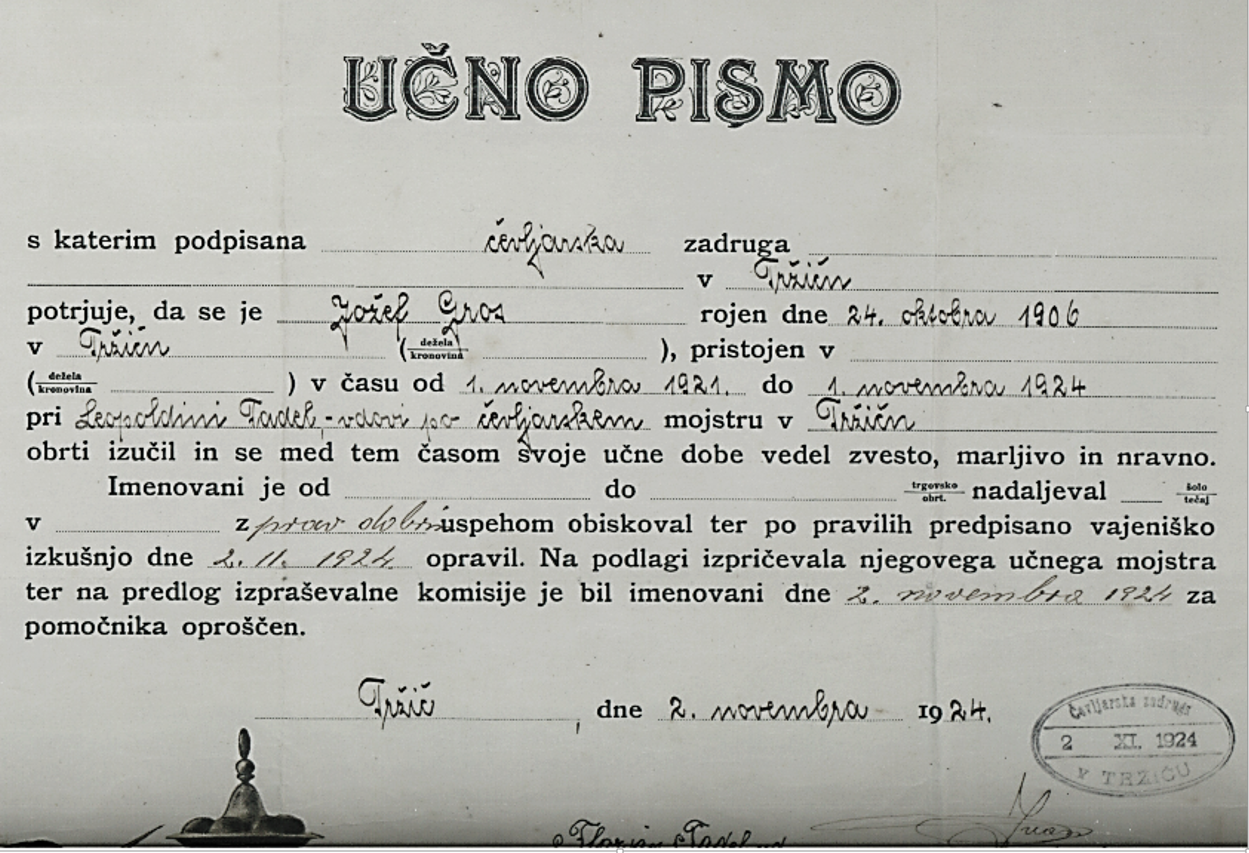 UČNO PISMO
s katerim podpisana čevljarska zadruga
v Tržiču
potrjuje, da se je Jožef Gros rojen dne 24. oktobra 1906
v Tržiču (dežela kronovina ), pristojen v
(dežela kronovina ) v času od 1. novembra 1921. do 1. novembra 1924
pri Leopoldini Tadel - vdovi po čevljarskem mojstru v Tržiču
obrti izučil in se med tem časom svoje učne dobe vedel zvesto, marljivo in nravno.
Imenovani je od do trgovsko obrt. nadaljeval šolo tečaj
v z prav dobrim uspehom obiskoval ter po pravilih predpisano vajeniško
izkušnjo dne 2. 11. 1924. opravil. Na podlagi izpričevala njegovega učnega mojstra
ter na predlog izpraševalne komisije je bil imenovani dne 2. novembra 1924 za
pomočnika oproščen.
Tržič, dne 2. novembra 1924.
Čevljarska zadruga
2 XI. 1924
V TRŽIČU